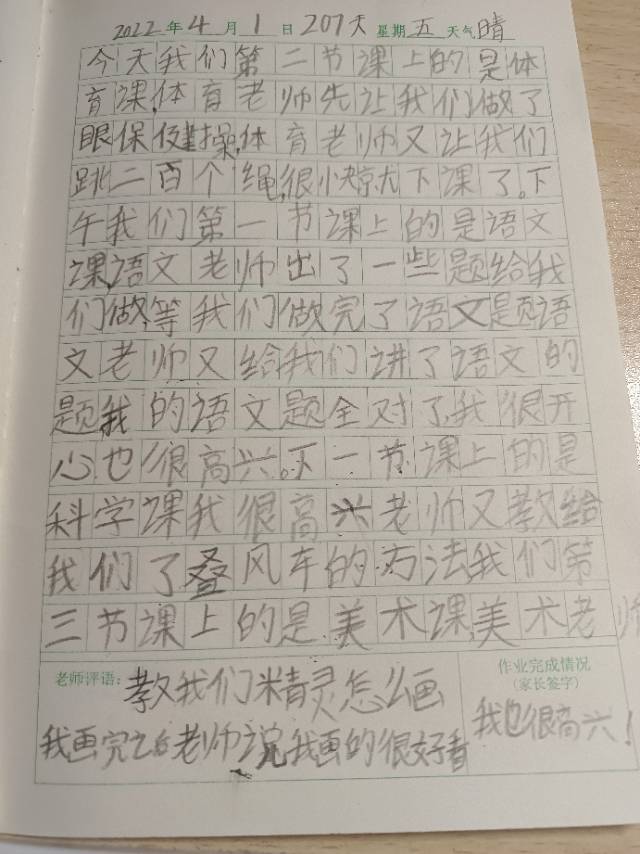 2022年4月1日207天星期五天气晴
今天我们第二节课上的是体
育课,体育老师先让我们做了
眼保健操,体育老师又让我们
跳二百个绳,很小快就下课了。下
午我们第一节课上的是语文
课,语文老师出了一些题给我
们做,等我们做完了语文题语
文老师又给我们讲了语文的
题,我的语文题全对了,我很开
心也很高兴。下一节课上的是
科学课我很高兴老师又教给
我们了叠风车的方法,我们第
三节课上的是美术课,美术老师
老师评语:教我们精灵怎么画
我画完之后老师说我画的很好看
作业完成情况
(家长签字)
我也很高兴!